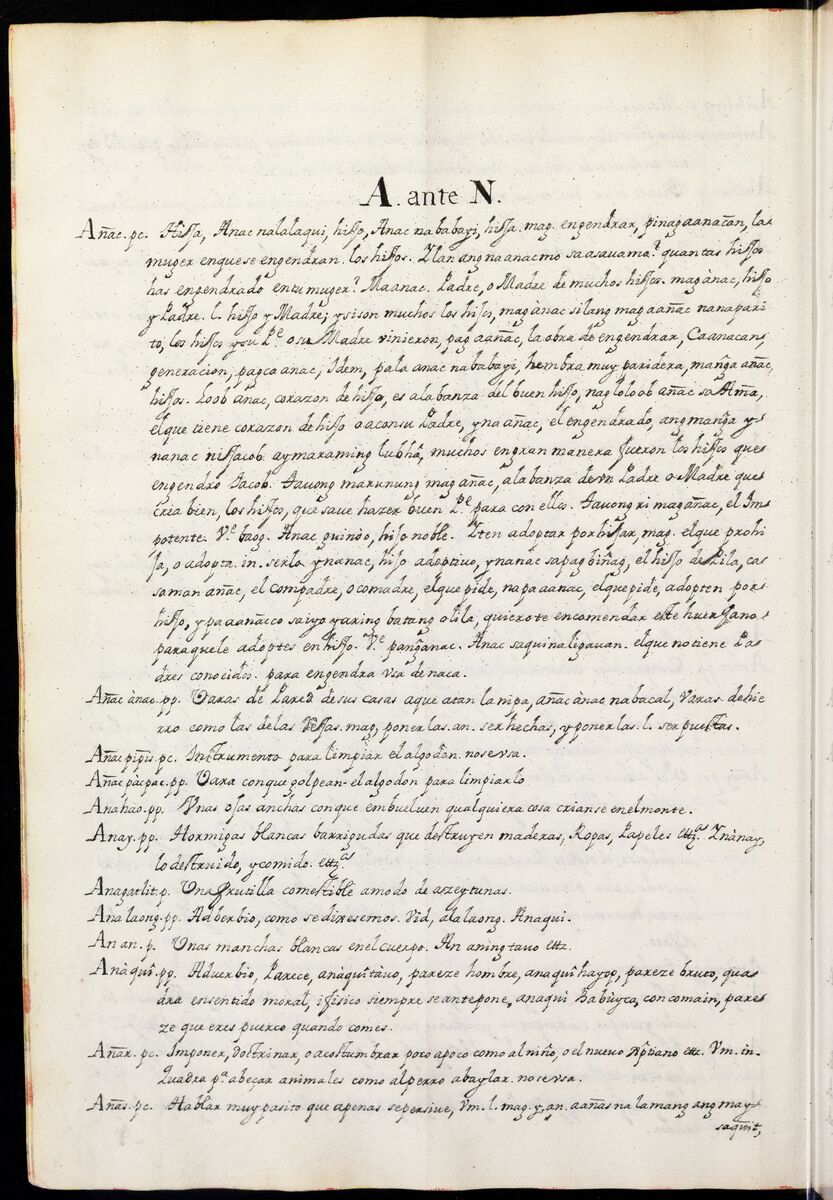 A. ante N.
Añac. pc. Hissa, Anac nalalaqui, hisso, Anac nababayi, hissa. mag. engendrar, pinagaanacan, la
muger enquese engendran. los hissos. Ylan ang naanacmo sa asauamo? quantas hissos
has engendrado entu muger? Maanac. Padre, o Madre de muchos hissos. magànac, hisso
y Padre. l. hisso y Madre; y sison muchos los hisos, magànac silang magaañac nanapari
to, los hissos y su Pe. o su Madre vinieron, pagaañàc, la obra de engendrar, Caanacan,
generacion, pagca anac; Idem, pala anac nababayi, hembra muy paridera, manga añac,
hissos. Loob añac, corazon de hisso, es alabanza del buen hisso, nagloloob añac sa Ama,
el que tiene corazon de hisso o aconsu Padre, ynaañac, el engendrado, ang manga y-
nanac ni Jacob. ay maraming lubhâ, muchos engran manera fueron los hissos que
engendro Jacob. Tauong marunung magañac, alabanza de vn Padre o Madre que
cria bien, los hissos, que saue hazer buen Pe. para con ellos. Tauong ri magañac, el Im-
potente. Ve. baog. Anac guinòo, hiso noble. Yten adoptar por hissar, mag. el que prohi
ssa, o adopta. in. serlo ynanac, hiso adoptivo, ynanac sapagbiñag, el hisso de Pila, ca-
saman añac, el compadre, o comadre, el que pide, napaaanac, el que pide, adopten por
hisso, ypaaañacco saiyo yaring batang olila, quiero te encomendar este huerfano
para quele adoptes en hisso. Ve. panganac. Anac saquinaligauan. el que no tiene Pa-
dres conocidos. para engendra vsa de naca.
Añac ànac. pp. Varas de Pared desus casas aque atan la nipa, añac ànac nabacal, varas. de hie
rro como las delas Ressas. mag, ponerlas. an. ser hechas, y ponerlas. l. ser puestas.
Añac pipis. pc. Instrumento para limpiar el algodon. nose vsa.
Añac pàcpac. pp. Vara conque golpean el algodon para limpiarlo
Anahao. pp. Vnas osas anchas conque embueluen qualquiera cosa crianse enel monte.
Anay. pp. Hormigas blancas barrigudas que destruyen maderas, Ropas, Papeles ettz.as Ynànay,
lo destruido, y comido. ettz.as
Anagatlit. p. Una frutilla comestible amodo de aszeytunas.
Analaong. pp. Adberbio, como sedixesemos. Vid, alalaong. Anaqui.
An an. p. Unas manchas blancas en el cuerpo. An aning tauo ettz.
Anàquî. pp. Aduerbio, Parece, anàquitàuo, pareze hombre, anaquîhayop, pareze bruto, qua-
dra ensentido moral, ifisico siempre se antepone, anaquì Babùyca, con comain, pare-
ze que eres puerco quando comes.
Añar. pc. Imponer, doctrinar, o acostumbrar poco apoco como al niño, o el nueuo xptiano ettz. Vm. in-
Quadra pa. abeçar animales como al perro abaylar. nose vsa.
Añas. pc. Hablar muy pasito que apenas sepersiue, Vm. l. mag. y, an. aañas na lamang ang may-
saquit,